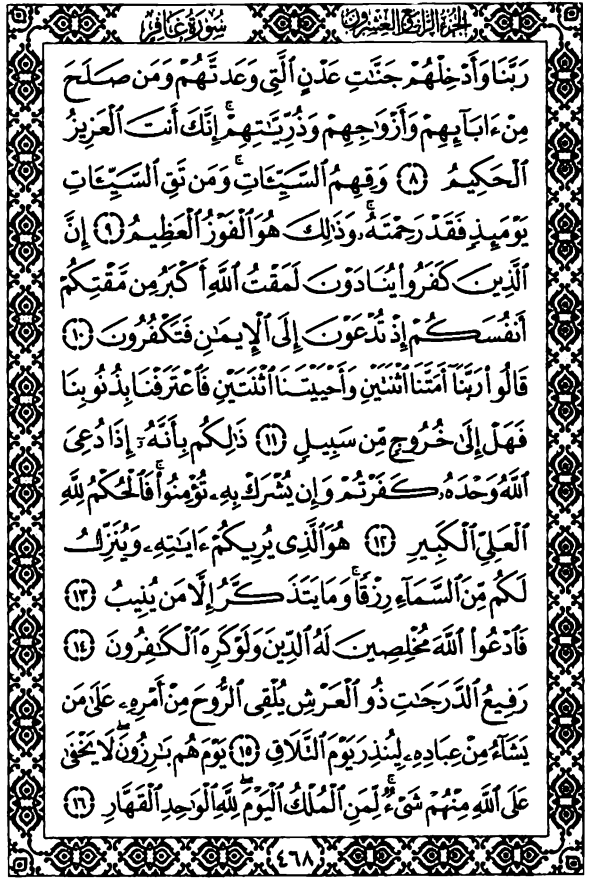 سُورَةُ غَافِرٍ
الجُزْءُ الرَّابِعُ وَالعِشْرُونَ
رَبَّنَا وَأَدْخِلْهُمْ جَنَّٰتِ عَدْنٍ ٱلَّتِى وَعَدتَّهُمْ وَمَن صَلَحَ
مِنْ ءَابَآئِهِمْ وَأَزْوَٰجِهِمْ وَذُرِّيَّٰتِهِمْ ۚ إِنَّكَ أَنتَ ٱلْعَزِيزُ
ٱلْحَكِيمُ ﴿٨﴾ وَقِهِمُ ٱلسَّيِّـَٔاتِ ۚ وَمَن تَقِ ٱلسَّيِّـَٔاتِ
يَوْمَئِذٍ فَقَدْ رَحِمْتَهُۥ ۚ وَذَٰلِكَ هُوَ ٱلْفَوْزُ ٱلْعَظِيمُ ﴿٩﴾ إِنَّ
ٱلَّذِينَ كَفَرُوا۟ يُنَادَوْنَ لَمَقْتُ ٱللَّهِ أَكْبَرُ مِن مَّقْتِكُمْ
أَنفُسَكُمْ إِذْ تُدْعَوْنَ إِلَى ٱلْإِيمَٰنِ فَتَكْفُرُونَ ﴿١٠﴾
قَالُوا۟ رَبَّنَآ أَمَتَّنَا ٱثْنَتَيْنِ وَأَحْيَيْتَنَا ٱثْنَتَيْنِ فَٱعْتَرَفْنَا بِذُنُوبِنَا
فَهَلْ إِلَىٰ خُرُوجٍ مِّن سَبِيلٍ ﴿١١﴾ ذَٰلِكُم بِأَنَّهُۥٓ إِذَا دُعِىَ
ٱللَّهُ وَحْدَهُۥ كَفَرْتُمْ ۖ وَإِن يُشْرَكْ بِهِۦ تُؤْمِنُوا۟ ۚ فَٱلْحُكْمُ لِلَّهِ
ٱلْعَلِىِّ ٱلْكَبِيرِ ﴿١٢﴾ هُوَ ٱلَّذِى يُرِيكُمْ ءَايَٰتِهِۦ وَيُنَزِّلُ
لَكُم مِّنَ ٱلسَّمَآءِ رِزْقًا ۚ وَمَا يَتَذَكَّرُ إِلَّا مَن يُنِيبُ ﴿١٣﴾
فَٱدْعُوا۟ ٱللَّهَ مُخْلِصِينَ لَهُ ٱلدِّينَ وَلَوْ كَرِهَ ٱلْكَٰفِرُونَ ﴿١٤﴾
رَفِيعُ ٱلدَّرَجَٰتِ ذُو ٱلْعَرْشِ يُلْقِى ٱلرُّوحَ مِنْ أَمْرِهِۦ عَلَىٰ مَن
يَشَآءُ مِنْ عِبَادِهِۦ لِيُنذِرَ يَوْمَ ٱلتَّلَاقِ ﴿١٥﴾ يَوْمَ هُم بَٰرِزُونَ ۖ لَا يَخْفَىٰ
عَلَى ٱللَّهِ مِنْهُمْ شَىْءٌ ۚ لِّمَنِ ٱلْمُلْكُ ٱلْيَوْمَ ۖ لِلَّهِ ٱلْوَٰحِدِ ٱلْقَهَّارِ ﴿١٦﴾
٤٦٨